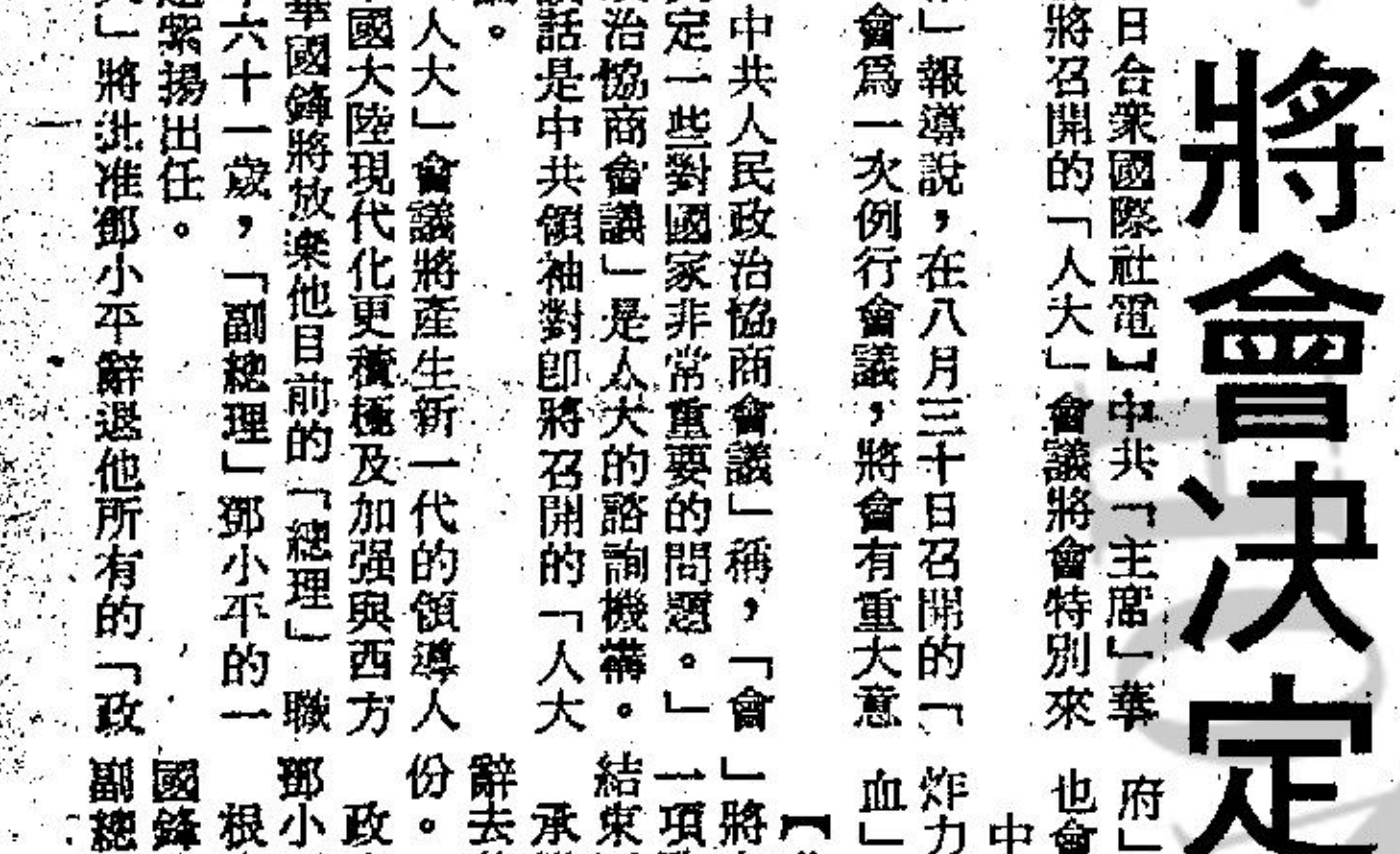 將會決定
日合衆國際社電】中共「主席」華
將召開的「人大」會議將會特別來
」報導說，在八月三十日召開的「
會爲一次例行會議，將會有重大意
中共人民政治協商會議」稱，「會
定一些對國家非常重要的問題。」
治協商會議」是人大的諮詢機構。
話是中共領袖對即將召開的「人大
。
人大」會議將產生新一代的領導人
國大陸現代化更積極及加强與西方
華國鋒將放棄他目前的「總理」職
六十一歲，「副總理」鄧小平的一
紫揚出任。
」將批准鄧小平辭退他所有的「政
府」
也會
中
炸力
血」
【
」將
一項
結束
承
辭去
份。
政
鄧小
根
國鋒
副總